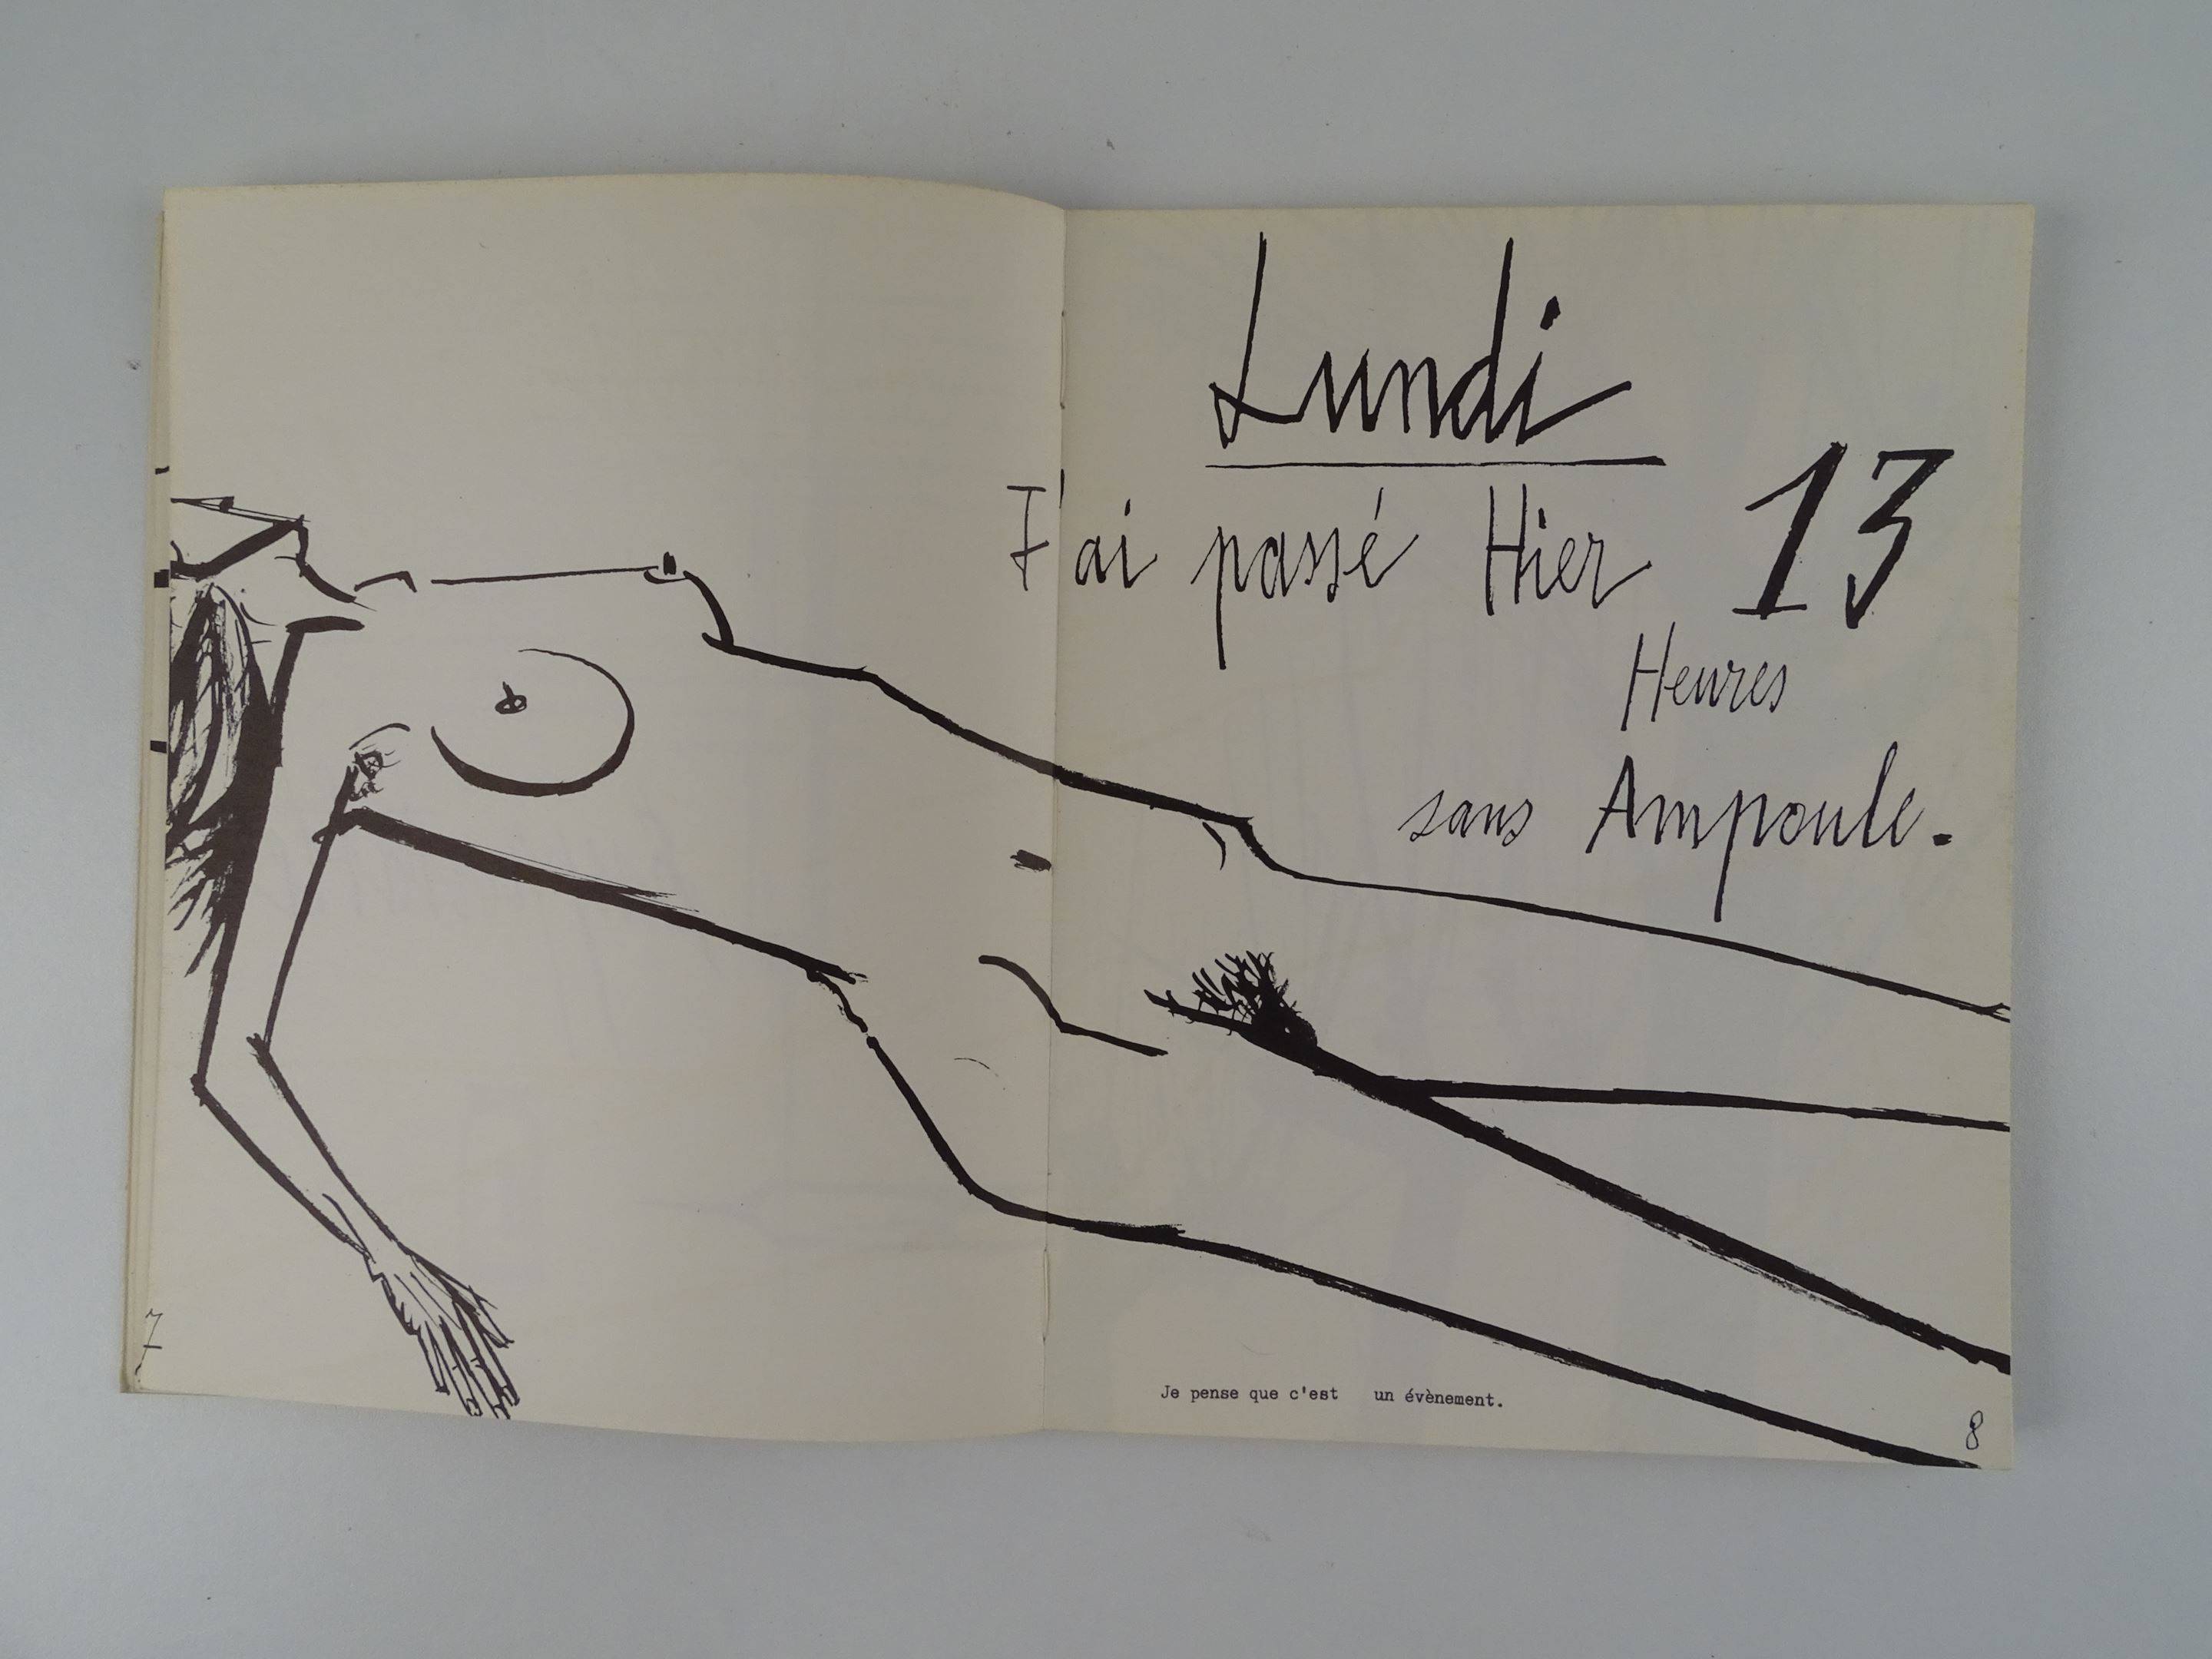 Lundi
J'ai passé Hier 13
Heures
sans Ampoule.
Je pense que c'est un évènement.
7
8